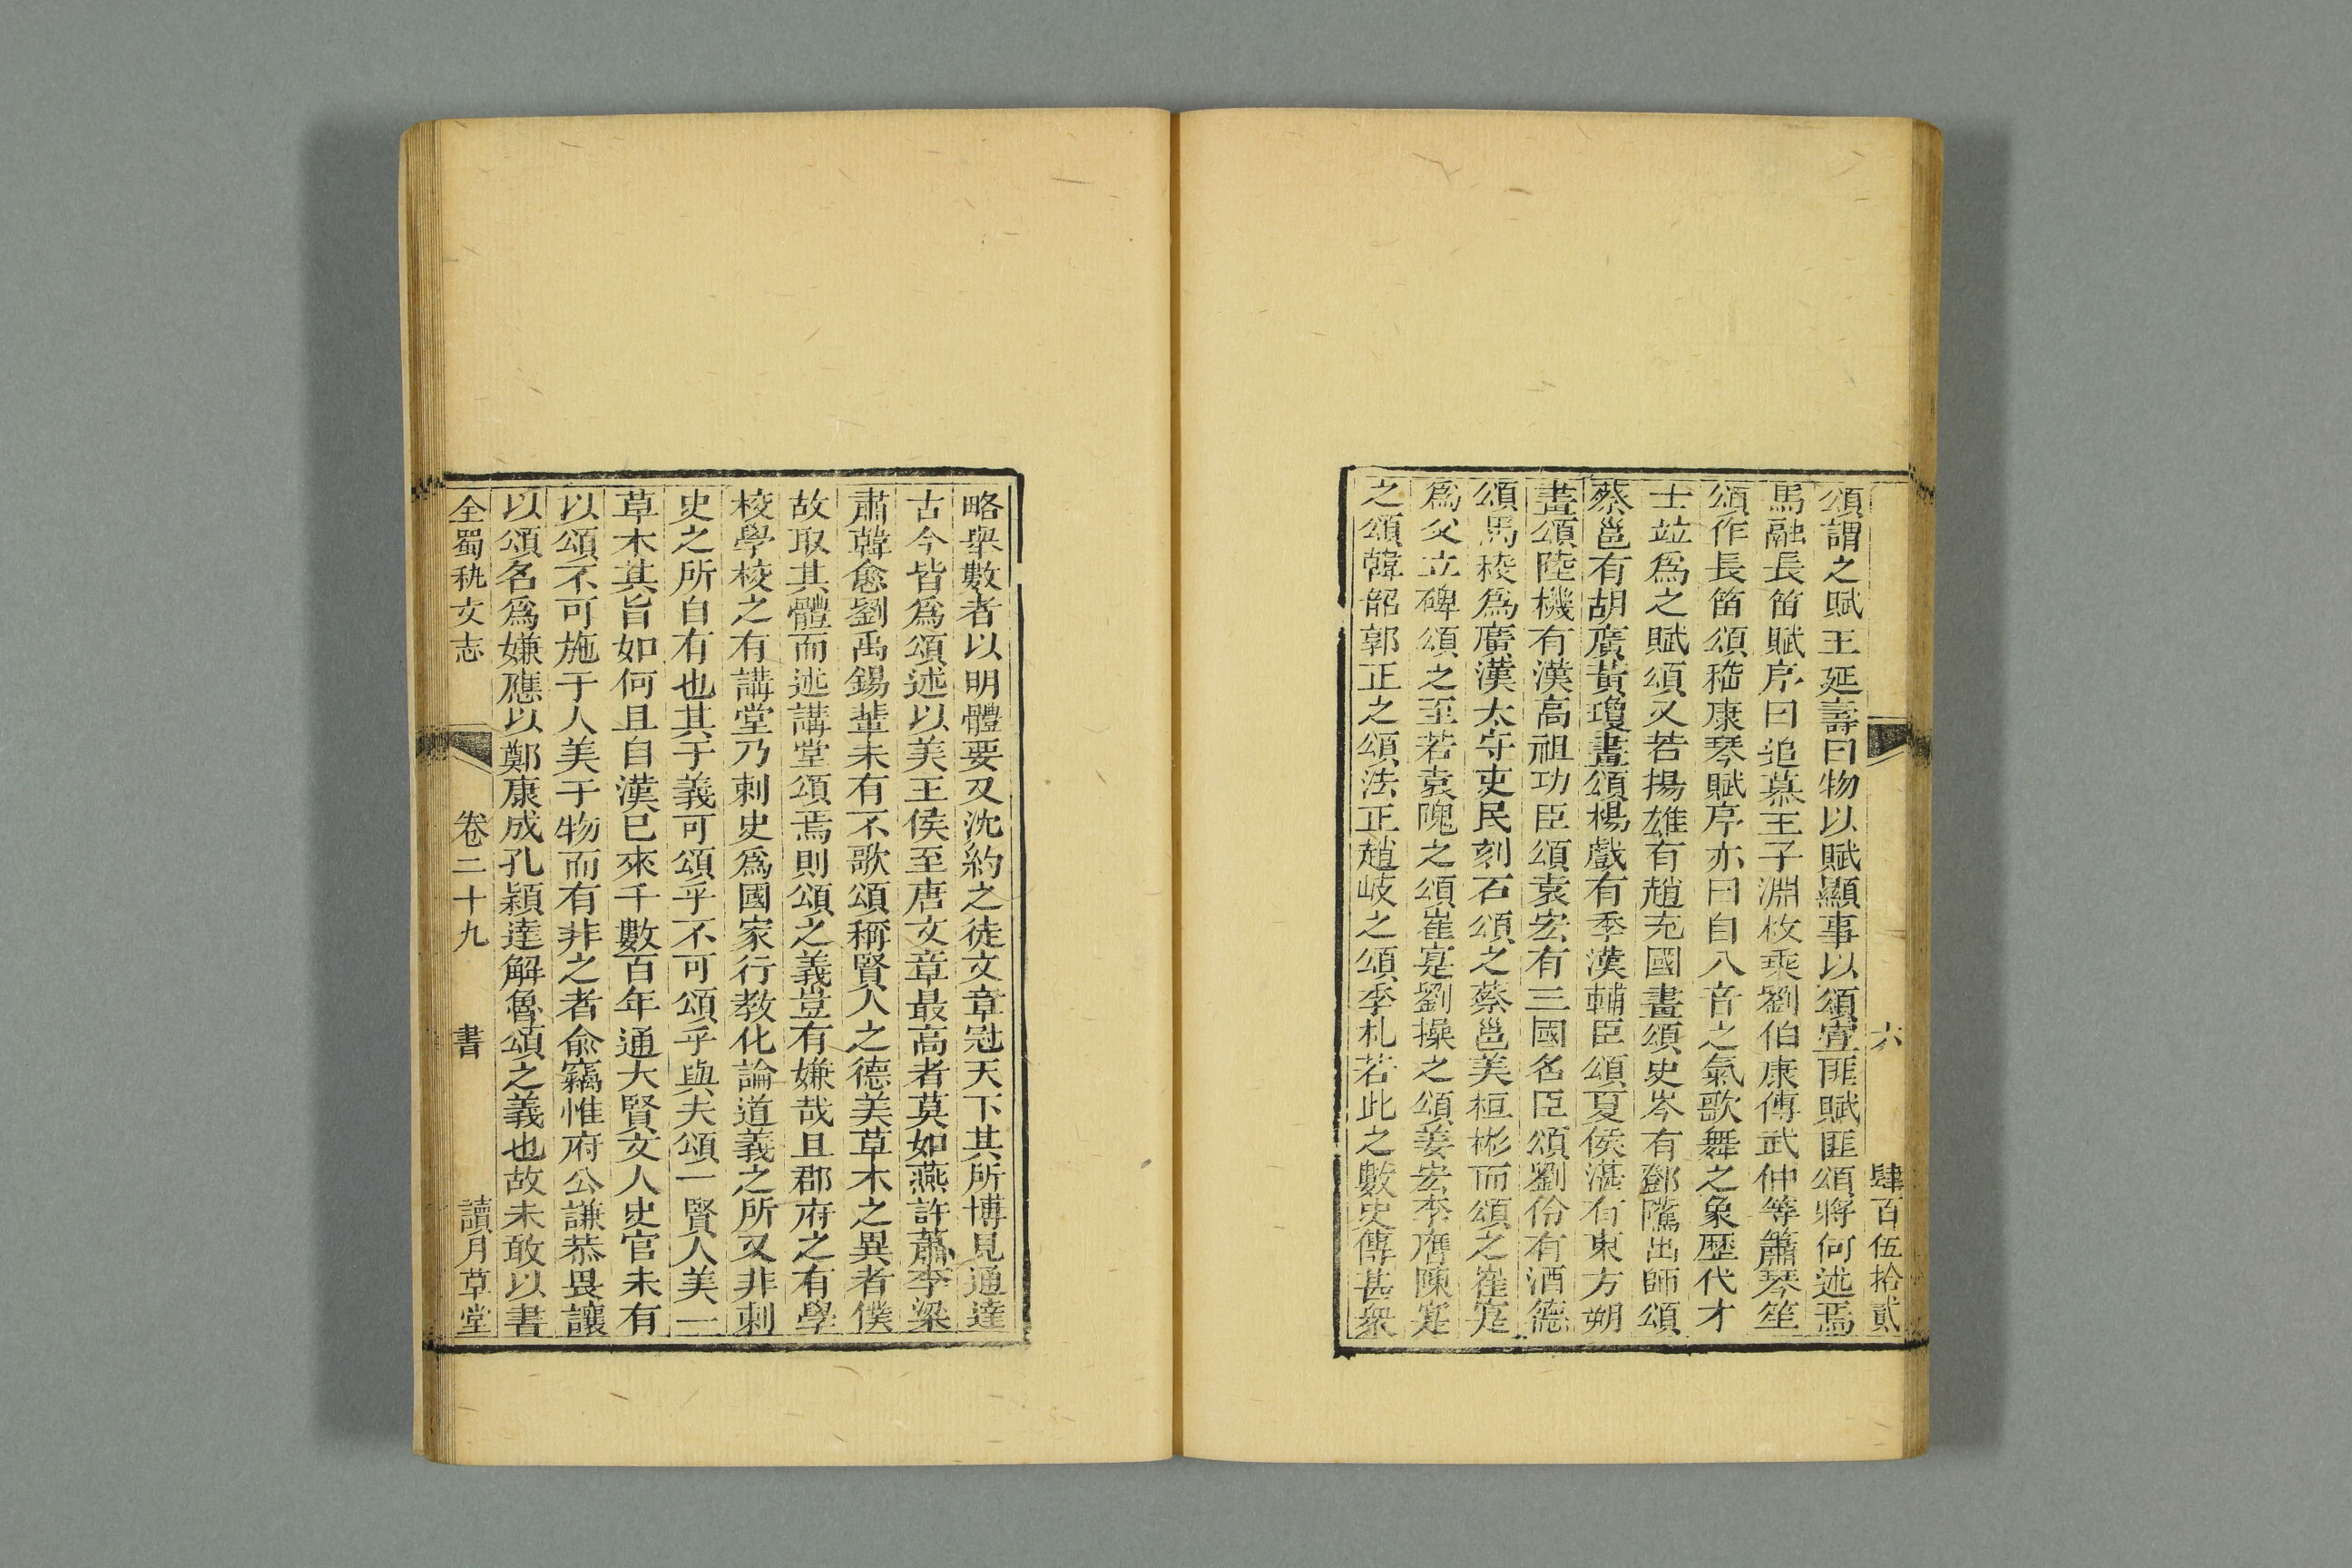 六 肆百伍拾貳
頌謂之賦王延壽曰物以賦顯事以頌宣匪賦匪頌將何述焉
馬融長笛賦序曰追慕王子淵枚乘劉伯康傅武仲等簫琴笙
頌作長笛頌嵇康琴賦序亦曰自八音之氣歌舞之象歷代才
士竝爲之賦頌又若揚雄有趙充國畫頌史岑有鄧隲出師頌
蔡邕有胡廣黃瓊畫頌楊戲有季漢輔臣頌夏侯湛有東方朔
畫頌陸機有漢高祖功臣頌袁宏有三國名臣頌劉伶有酒德
頌馬稜爲廣漢太守吏民刻石頌之蔡邕美桓彬而頌之崔寔
爲父立碑頌之至若袁隗之頌崔寔劉操之頌姜宏李膺陳寔
之頌韓韶郭正之頌法正趙岐之頌季札若此之數史傳甚衆
略舉數者以明體要又沈約之徒文章冠天下其所博見通達
古今皆爲頌述以美王侯至唐文章最高者莫如燕許蕭李梁
肅韓愈劉禹錫輩未有不歌頌稱賢人之德美草木之異者僕
故取其體而述講堂頌焉則頌之義豈有嫌哉且郡府之有學
校學校之有講堂乃刺史爲國家行教化論道義之所又非刺
史之所自有也其于義可頌乎不可頌乎與夫頌一賢人美一
草木其旨如何且自漢已來千數百年通大賢文人史官未有
以頌不可施于人美于物而有非之者俞竊惟府公謙恭畏讓
以頌名爲嫌應以鄭康成孔穎達解魯頌之義也故未敢以書
全蜀秇文志 卷二十九 書 讀月草堂